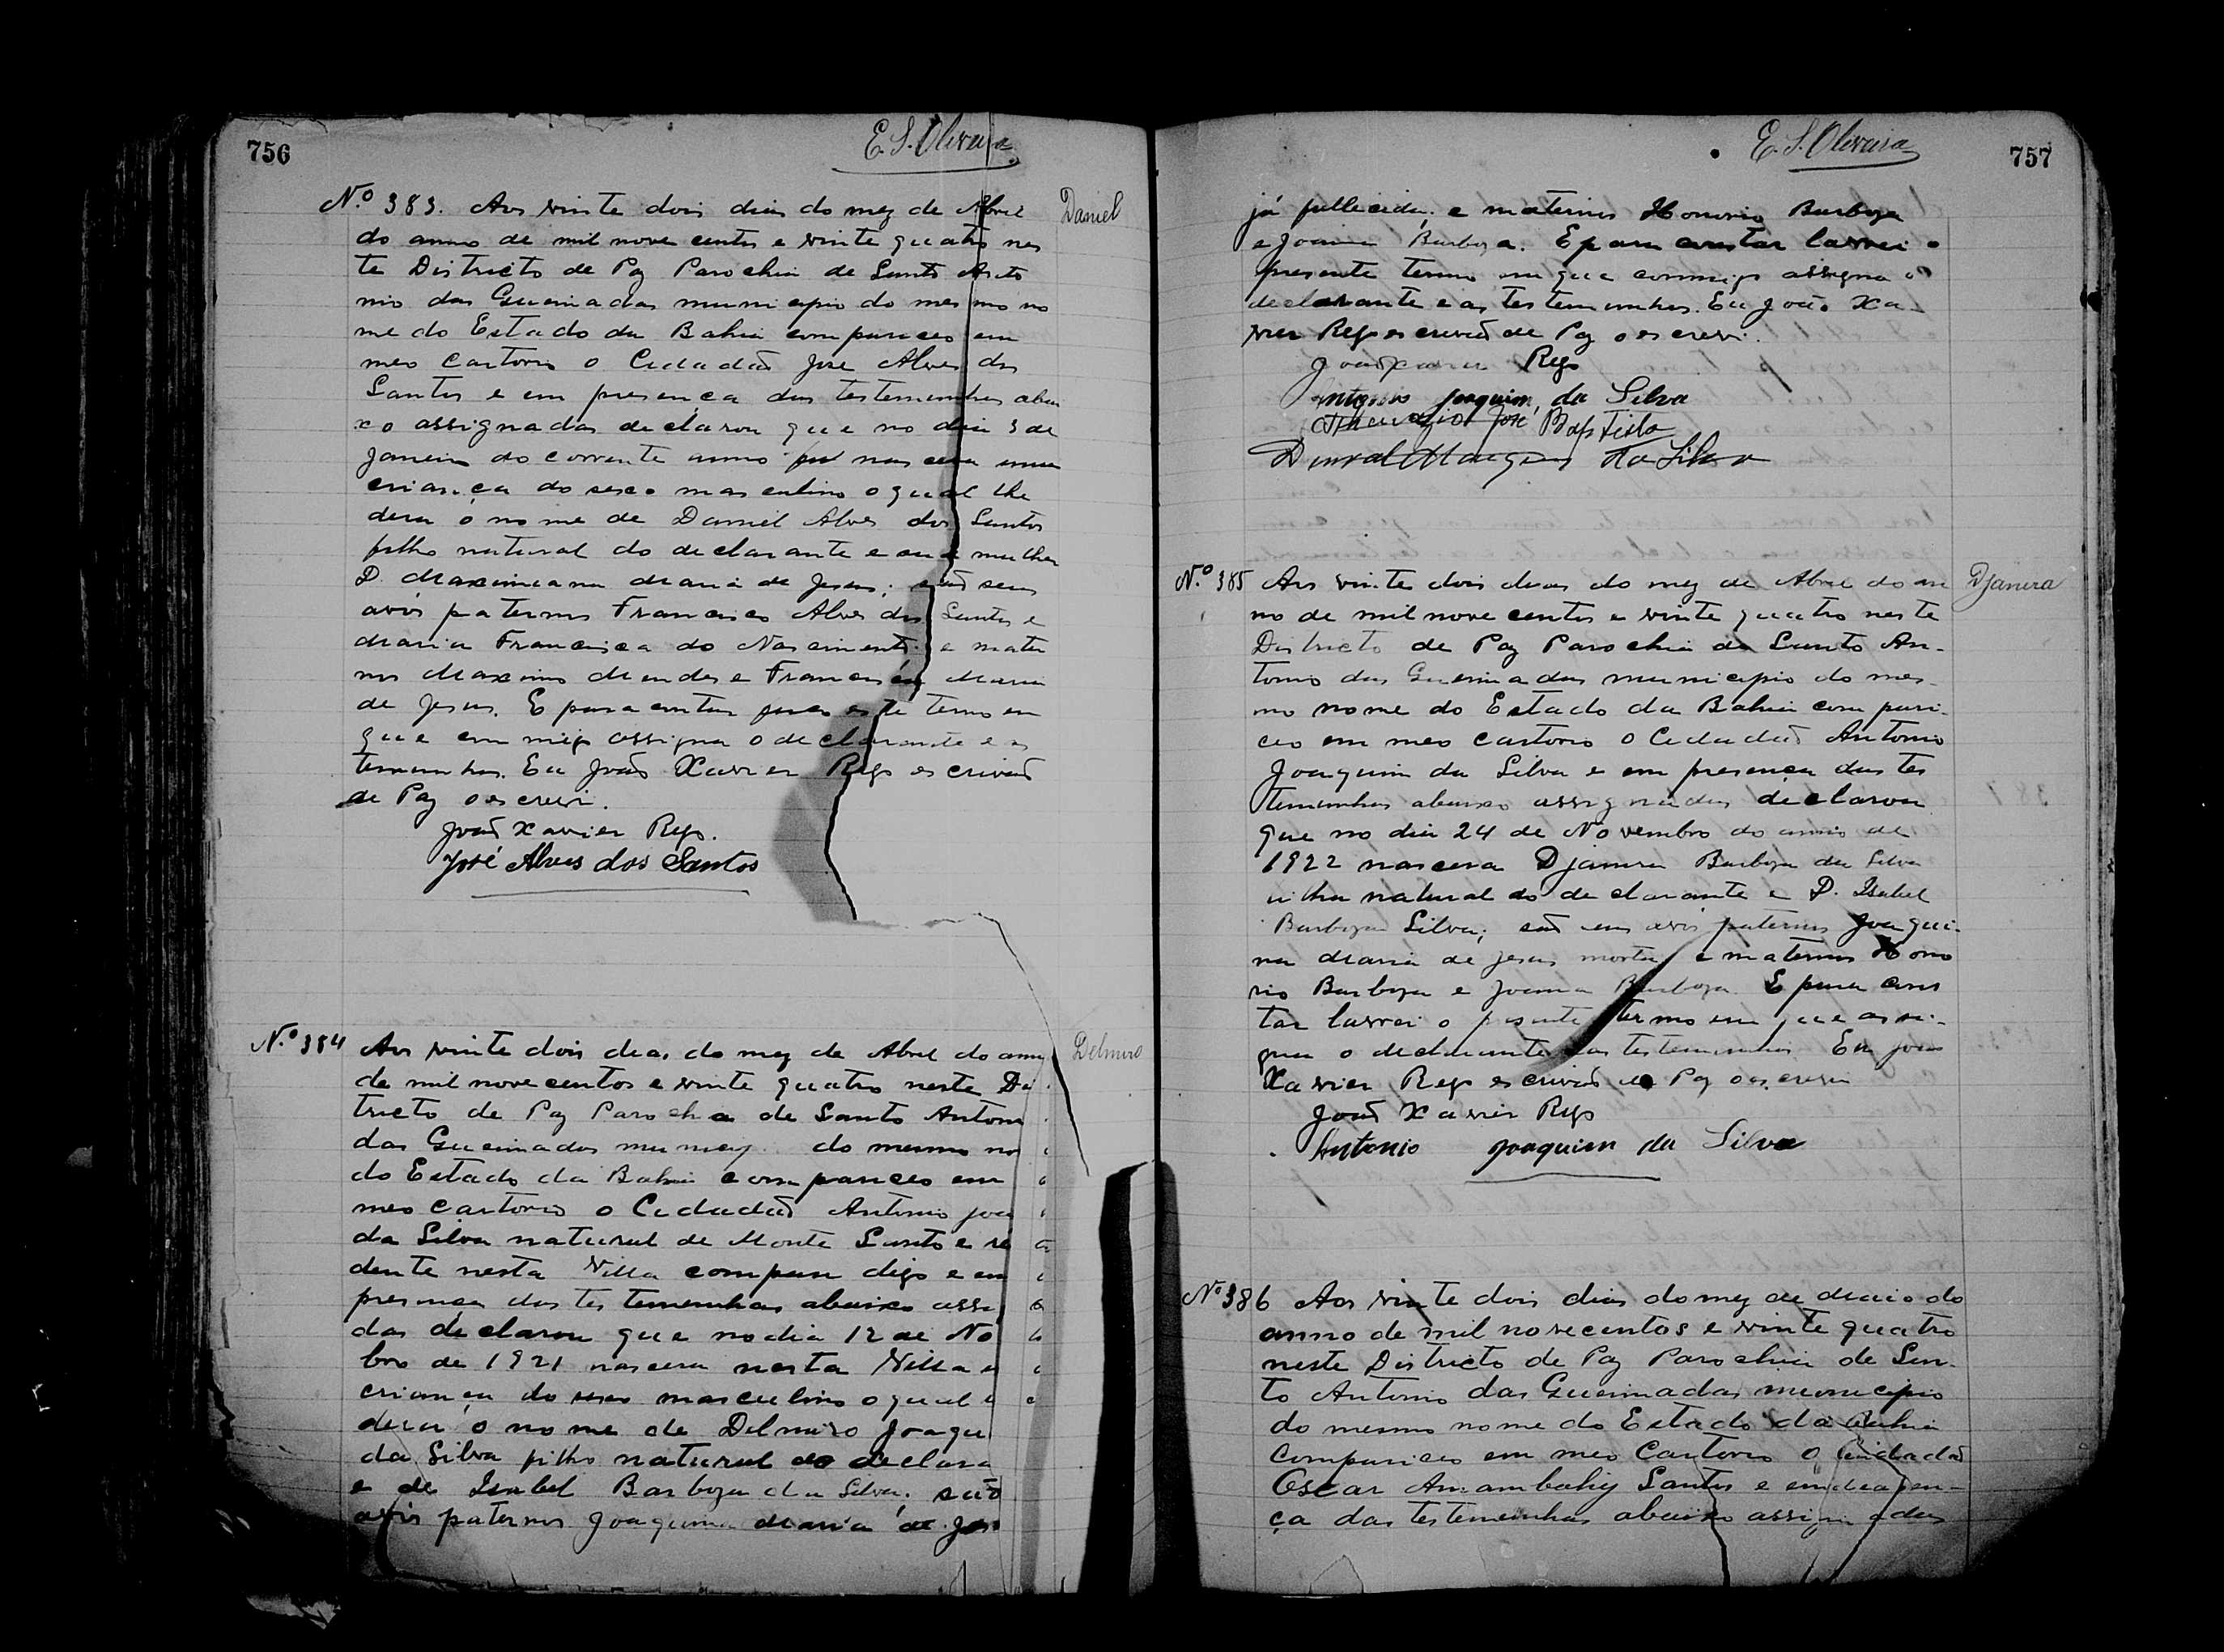 756
E. S. Oliveira
Nº 383. Aos vinte dois dias do mez de Abril
Daniel
do anno de mil nove centos e vinte quatro nes
te Districto de Paz Parochia de Santo Anto
nio das Queimadas municipio do mesmo no
me do Estado da Bahia compareceo em
meo Cartorio o Cidadaõ Jose Alves dos
Santos e em presença das testemunhas abai
xo assignadas declarou que no dia 3 de
Janeiro do corrente anno nascera uma
criança do sexo masculino o qual lhe
dera o nome de Daniel Alves dos Santos
filho natural do declarante e sua mulher
D. Maximiana Maria de Jesus; saõ seus
avós paternos Francisco Alves dos Santos e
Maria Francisca do Nascimento e mater
nos Maximo Mendes e Francisca Maria
de Jesus. E para constar este termo em
que commigo assigna o declarante e as
temunhas. Eu Joaõ Xavier Rego escrivaõ
de Paz o escrevi.
Joaõ Xavier Rego.
José Alves dos Santos
Nº 384 Aos vinte dois dias do mez de Abril do anno
Delmiro
de mil nove centos e vinte quatro neste Di
tricto de Paz Parochia de Santo Anton
das Queimadas municip do mesmo no
do Estado da Bahia compareceo em
meo Cartorio o Cidadaõ Antonio Joa
da Silva natural de Monte Santo e re
dente nesta Villa digo e em
presença das testemunhas abaixo assi
das declarou que no dia 12 de No
bro de 1921 nascera nesta Villa
criança do sexo masculino o qual
dera o nome de Delmiro Joaqu
da Silva filho natural do declara
e de Isabel Barboza da Silva; saõ
avós paternos Joaquina Maria de Jes
757
E. S. Oliveira
já fallecida; e maternos Honorio Barboza
e Joanna Barboza. E para constar lavrei o
presente termo em que commigo assigna o
declarante e as testemunhas. Eu Joaõ Xa-
vier Rego escrivaõ de Paz o escrevi.
Joaõ Xavier Rego
Antonio Joaquim da Silva
José Baptista
Durval Marques da Silva
Nº 385 Aos vinte dois dias do mez de Abril do an
Djanira
no de mil nove centos e vinte quatro neste
Districto de Paz Parochia de Santo An-
tonio das Queimadas municipio do mes-
mo nome do Estado da Bahia compare-
ceo em meo cartorio o Cidadaõ Antonio
Joaquim da Silva e em presença das tes
temunhas abaixo assignadas declarou
que no dia 24 de Novembro do anno de
1922 nascera Djanira Barboza da Silva
filha natural do declarante e D. Isabel
Barboza Silva; saõ seus avós paternos Joaqui-
na Maria de Jesus morta e maternos Hono
rio Barboza e Joanna Barboza. E para cons
tar lavrei o presente termo em que assi-
gna o declarante e as testemunhas. Eu Joaõ
Xavier Rego escrivaõ de Paz o escrevi
Joaõ Xavier Rego
Antonio Joaquim da Silva
Nº 386 Aos vinte dois dias do mez de Maio do
anno de mil novecentos e vinte quatro
neste Districto de Paz Parochia de San-
to Antonio das Queimadas municipio
do mesmo nome do Estado da Bahia
compareceo em meo Cartorio o Cidadaõ
Oscar Santos e em
ça das testemunhas abaixo assignadas